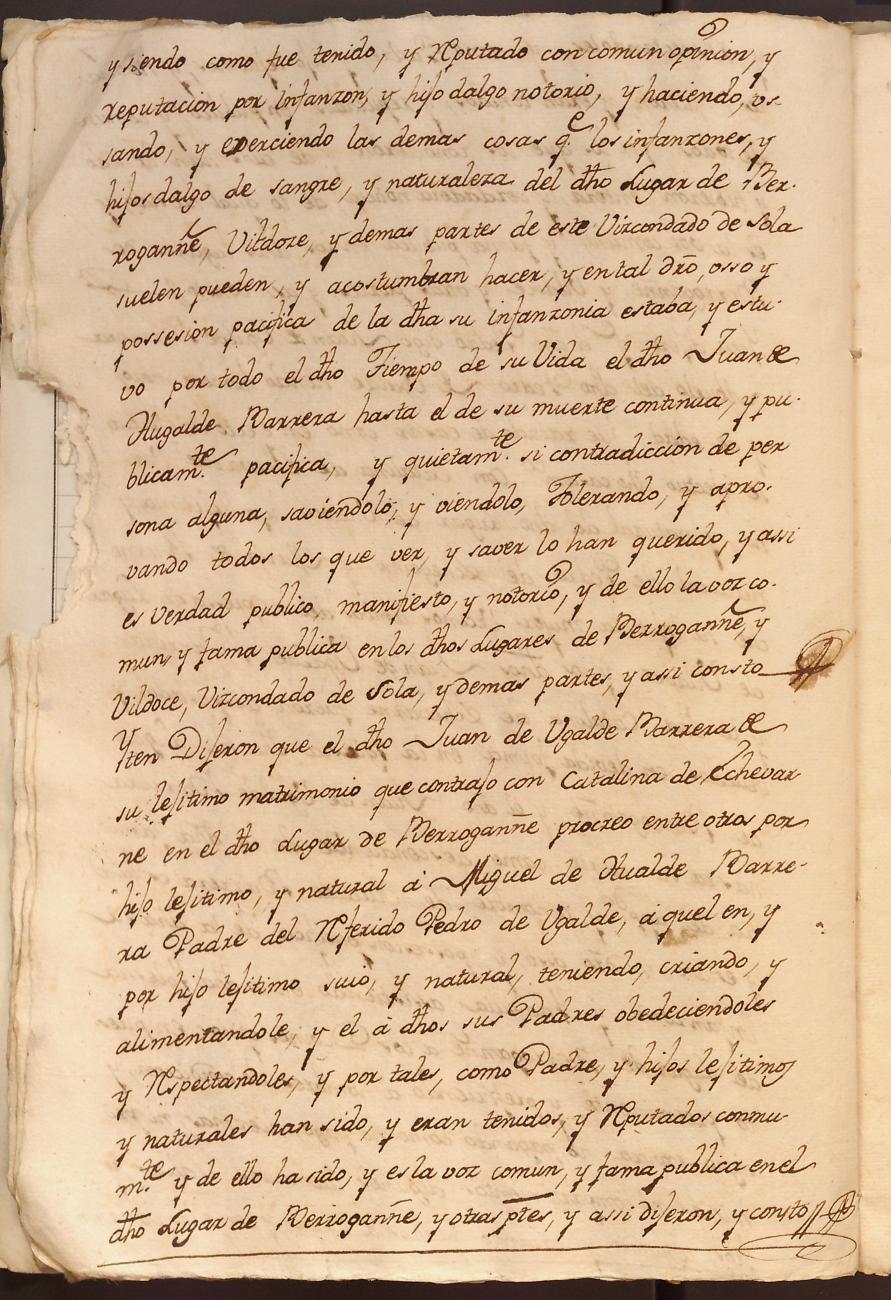 y siendo como fue tenido, y Reputado con comun opinion, y
reputacion por infanzon, y hijo dalgo notorio, y haciendo, vs-
sando, y exerciendo las demas cosas q.e los infanzones, y
hijos dalgo de sangre, y naturaleza del dho Lugar de Ber-
roganñe, Vildoze, y demas partes de este Vizcondado de Sola
suelen pueden, y acostumbran hacer, y en tal dro, osso y
possesion pacifica de la dha su infanzonia estaba, y estu-
vo por todo el dho Tiempo de su Vida el dho Juan de
Hugalde Barrera hasta el de su muerte continua, y pu-
blicam.te pacifica, y quietam.te si contradiccion de per
sona alguna, saviendolo, y viendolo, Tolerando, y apro-
vando todos los que ver, y saver lo han querido, y assi
es verdad publico, manifiesto, y notorio, y de ello la voz co-
mun y fama publica en los dhos Lugares de Berroganñe, y
Vildoce, Vizcondado de Sola, y demas partes, y assi consto
Yten Dijeron que el dho Juan de Vgalde Barrera de
su lejitimo matrimonio que contrajo con Catalina de Echevar
ne en el dho Lugar de Berroganñe procreo entre otros por
hijo lejitimo, y natural a Miguel de Hualde Barre-
ra Padre del Referido Pedro de Vgalde, a quel en, y
por hijo lejitimo suio, y natural, teniendo, criando, y
alimentandole, y el a dhos sus Padres obedeciendoles
y Respectandoles, y por tales, como Padre, y hijos lejitimos
y naturales han sido, y eran tenidos, y Reputados conmu-
m.te y de ello ha sido, y es la voz comun, y fama publica en el
dho Lugar de Berroganñe, y otras ptes, y assi dijeron, y consto